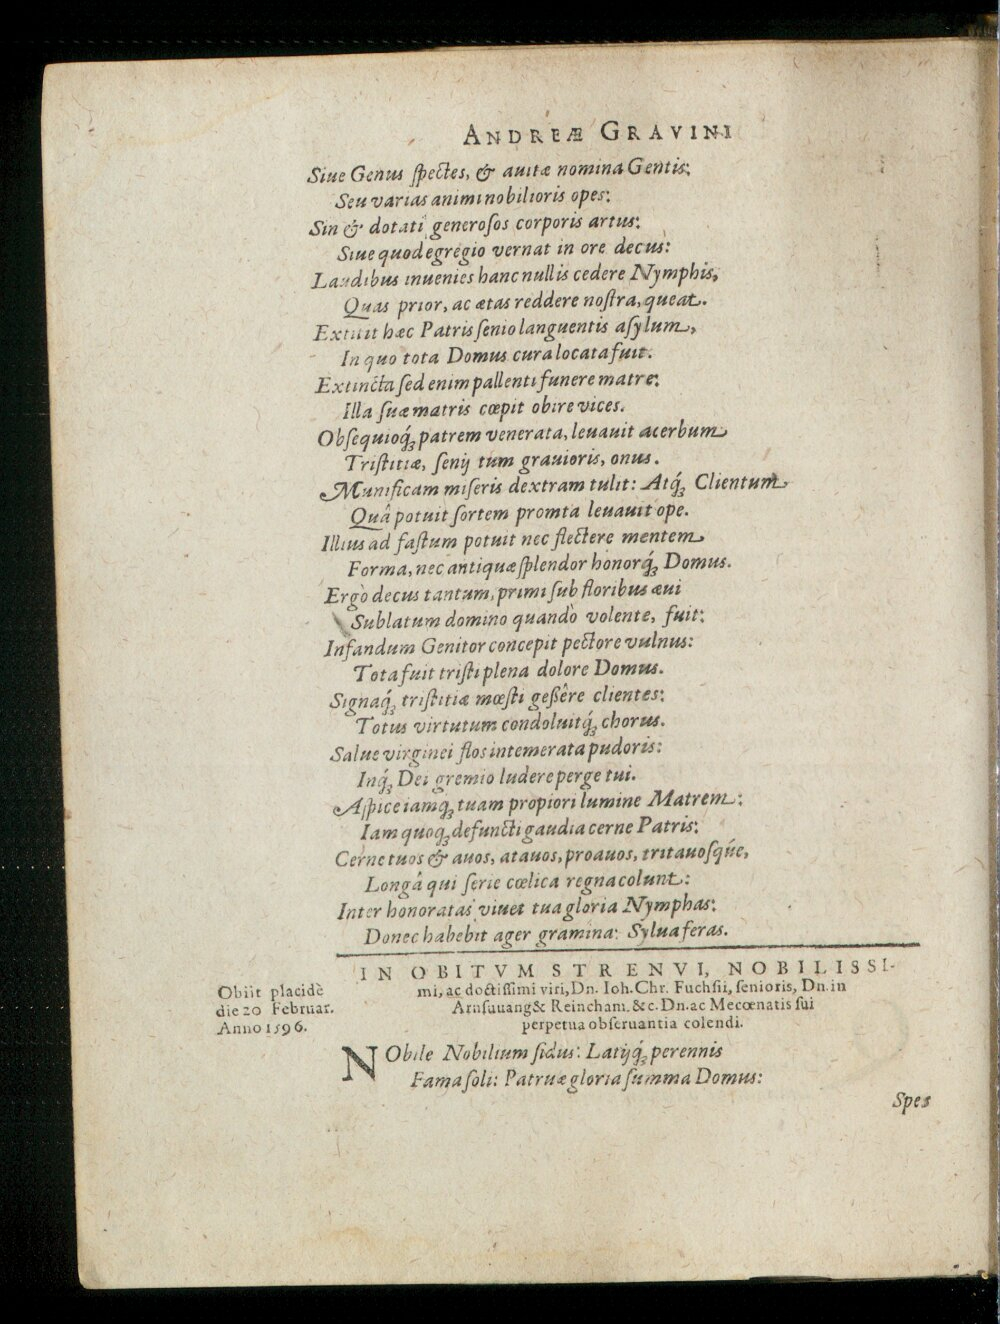 ANDREÆ GRAVINI
Siue Genus spectes, & auitæ nomina Gentis:
Seu varias animi nobilioris opes:
Sin & dotati generosos corporis artus:
Siue quod egregio vernat in ore decus:
Laudibus inuenies hanc nullis cedere Nymphis,
Quas prior, ac ætas reddere nostra, queat.
Extitit hæc Patris senio languentis asylum,
In quo tota Domus cura locata fuit.
Extincta sed enim pallenti funere matre:
Illa suæ matris cœpit obire vices.
Obsequioq́; patrem venerata, leuauit acerbum
Tristitiæ, senij tum grauioris, onus.
Munificam miseris dextram tulit: Atq́; Clientum
Quâ potuit sortem promta leuauit ope.
Illius ad fastum potuit nec flectere mentem
Forma, nec antiquæ splendor honorq́; Domus.
Ergò decus tantum, primi sub floribus æui
Sublatum domino quandò volente, fuit:
Infandum Genitor concepit pectore vulnus:
Tota fuit tristi plena dolore Domus.
Signaq́; tristitiæ mœsti geßêre clientes:
Totus virtutum condoluitq́; chorus.
Salue virginei flos intemerata pudoris:
Inq́; Dei gremio ludere perge tui.
Aspice iamq́; tuam propiori lumine Matrem:
Iam quoq; defuncti gaudia cerne Patris:
Cerne tuos & auos, atauos, proauos, tritauosq́ue,
Longâ qui serie cœlica regna colunt:
Inter honoratas viuet tua gloria Nymphas:
Donec habebit ager gramina: Sylua feras.
IN OBITVM STRENVI, NOBILISSI-
mi, ac doctissimi viri, Dn. Ioh. Chr. Fuchsii, senioris, Dn. in
Arnsuuang & Reincham. &c. Dn. ac Mecœnatis sui
perpetua obseruantia colendi.
Obiit placidè
die 20 Februar.
Anno 1596.
NObile Nobilium sidus: Latijq́; perennis
Fama soli: Patruæ gloria summa Domus:
Spes